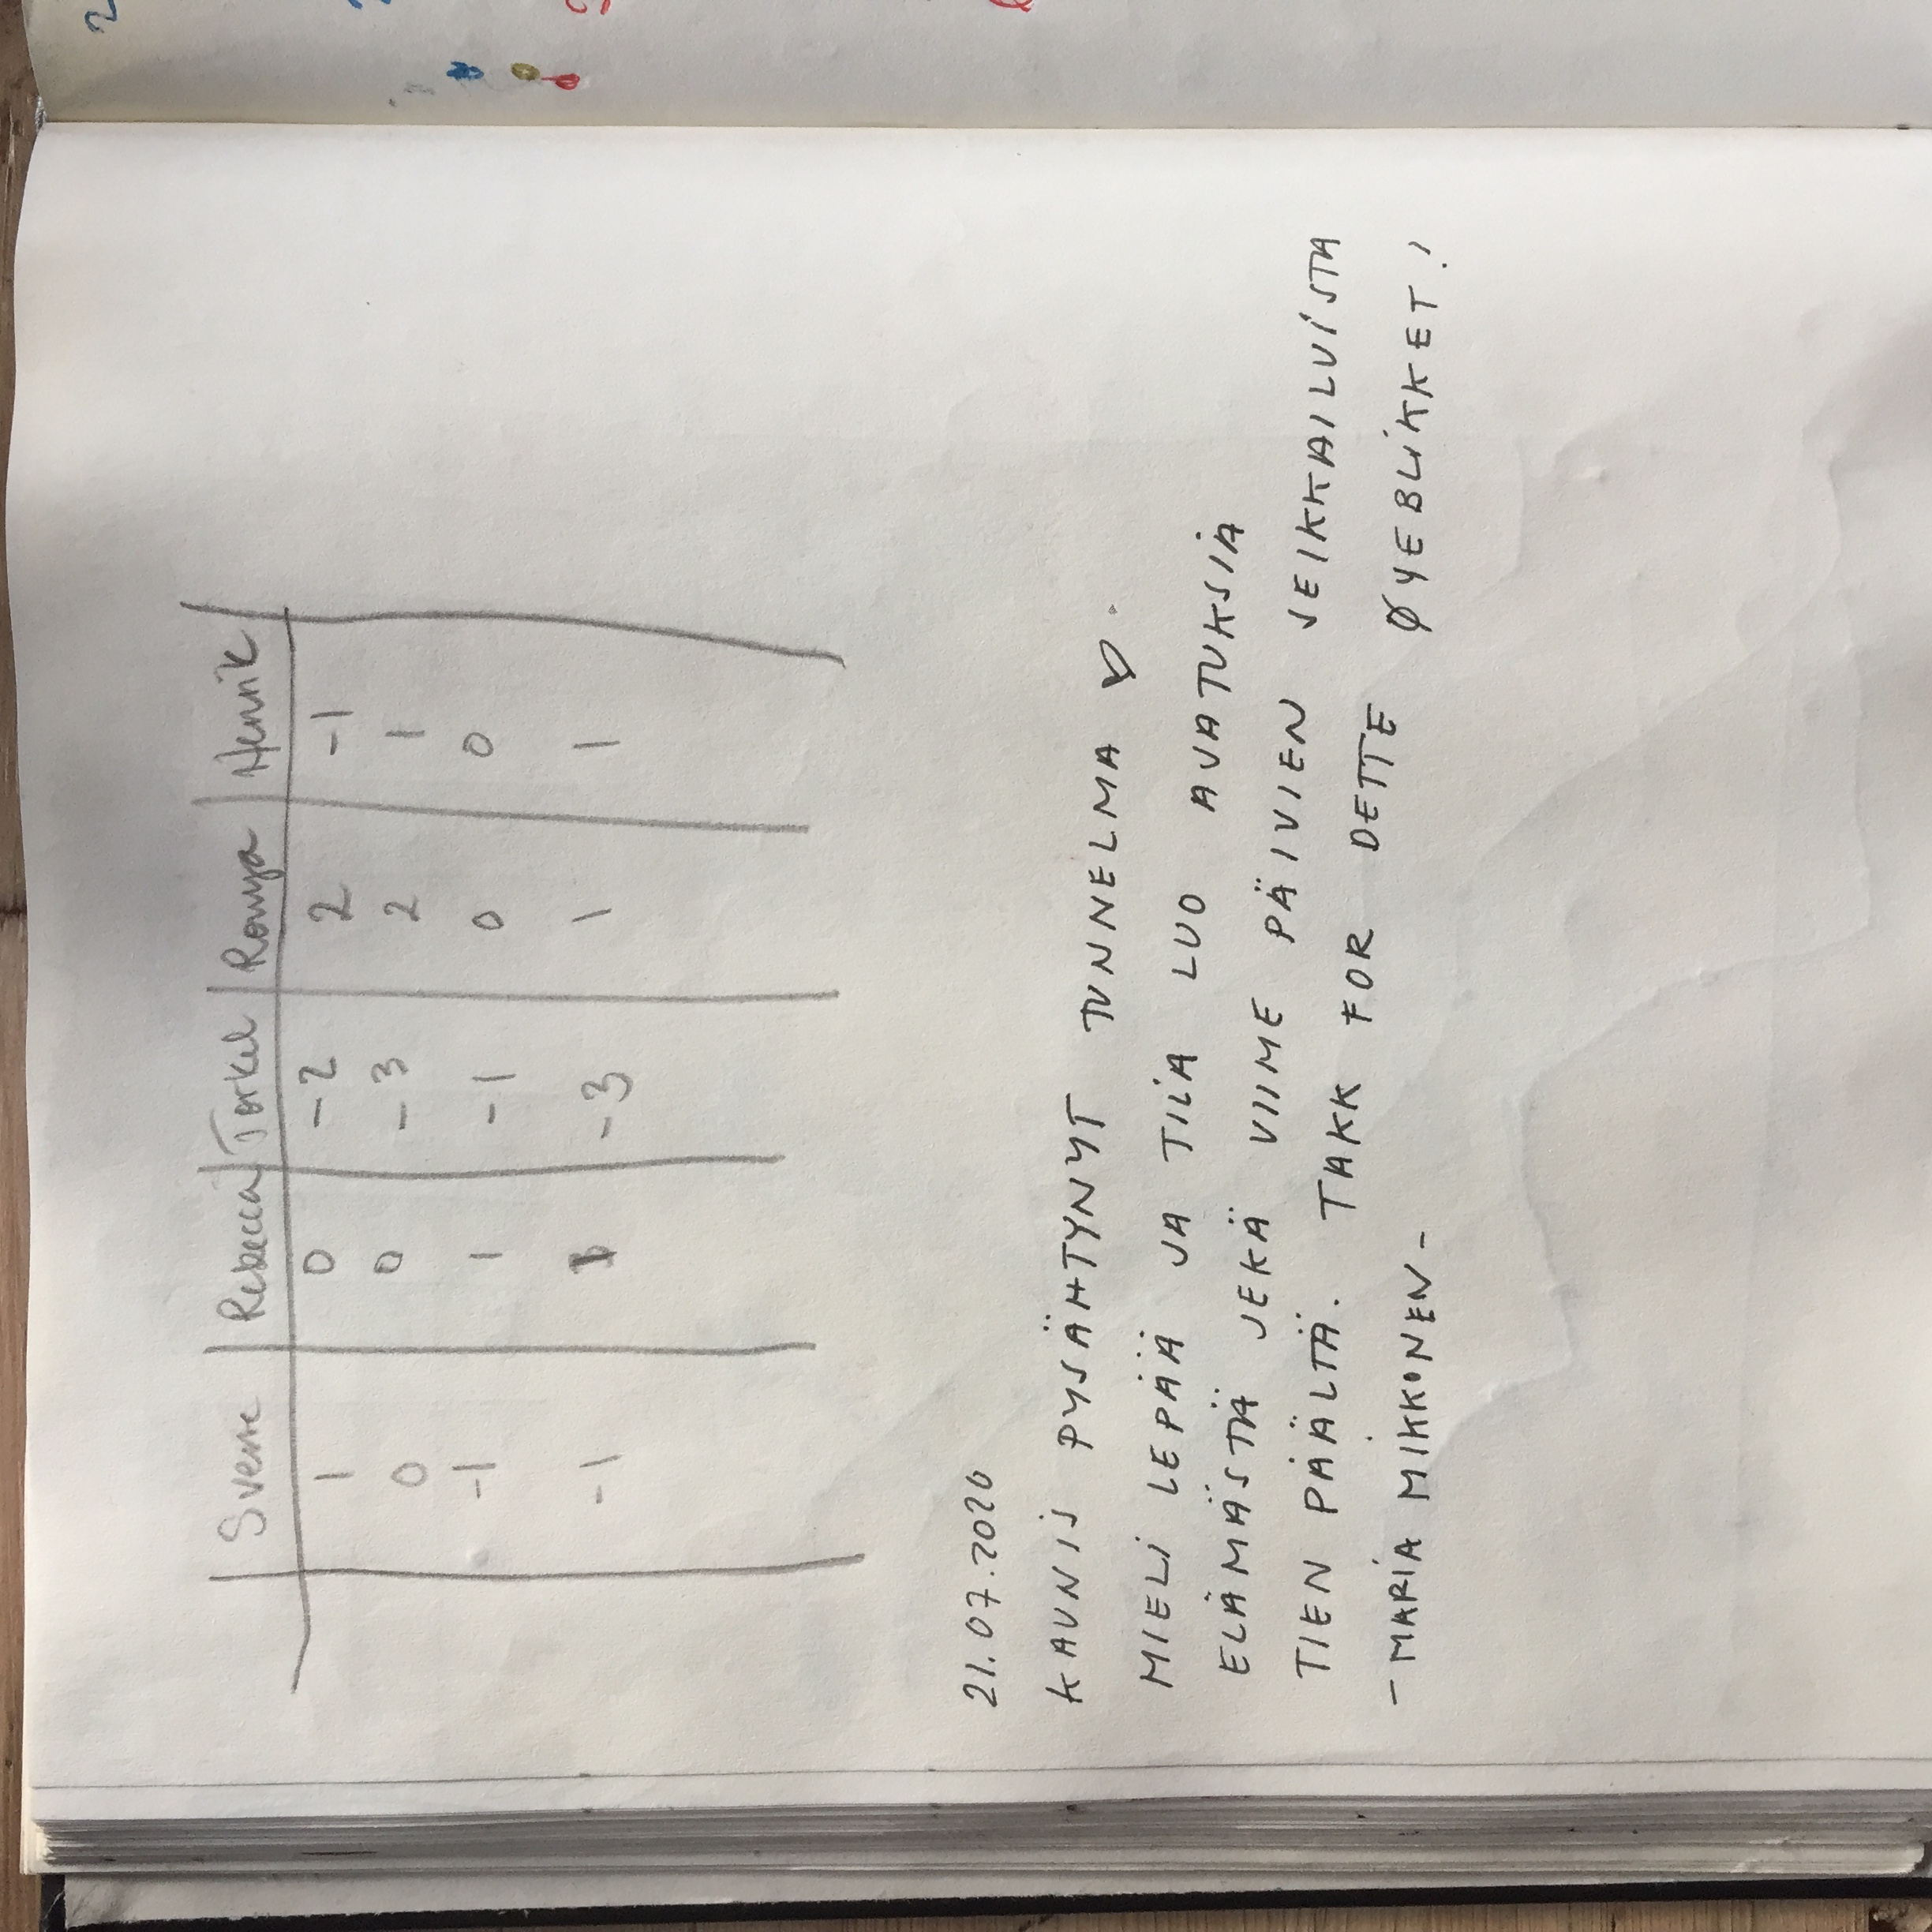 Sverre Rebecca Torkel Ronya Henrik
1 0 -2 2 -1
0 0 -3 2 1
-1 1 -1 0 0
-1 1 -3 1 1
21.07.2020
KAUNIS PYSÄHTYNYT TUNNELMA ♡.
MIELI LEPÄÄ JA TILA LUO AVATUKSIA
ELÄMÄSTÄ SEKÄ VIIME PÄIVIEN SEIKKAILUISTA
TIEN PÄÄLTÄ. TAKK FOR DETTE ØYEBLIKKET!
- MARIA MIKKONEN -